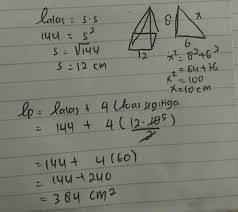 Lalas = s.s
144 = s²
s = √144
s = 12 cm
8
12
8
x
6
x² = 8² + 6²
= 64 + 36
x² = 100
x = 10 cm
Lp = Lalas + 4 (luas segitiga
= 144 + 4 (12 . 10 5)
2
= 144 + 4 (60)
= 144 + 240
= 384 cm²